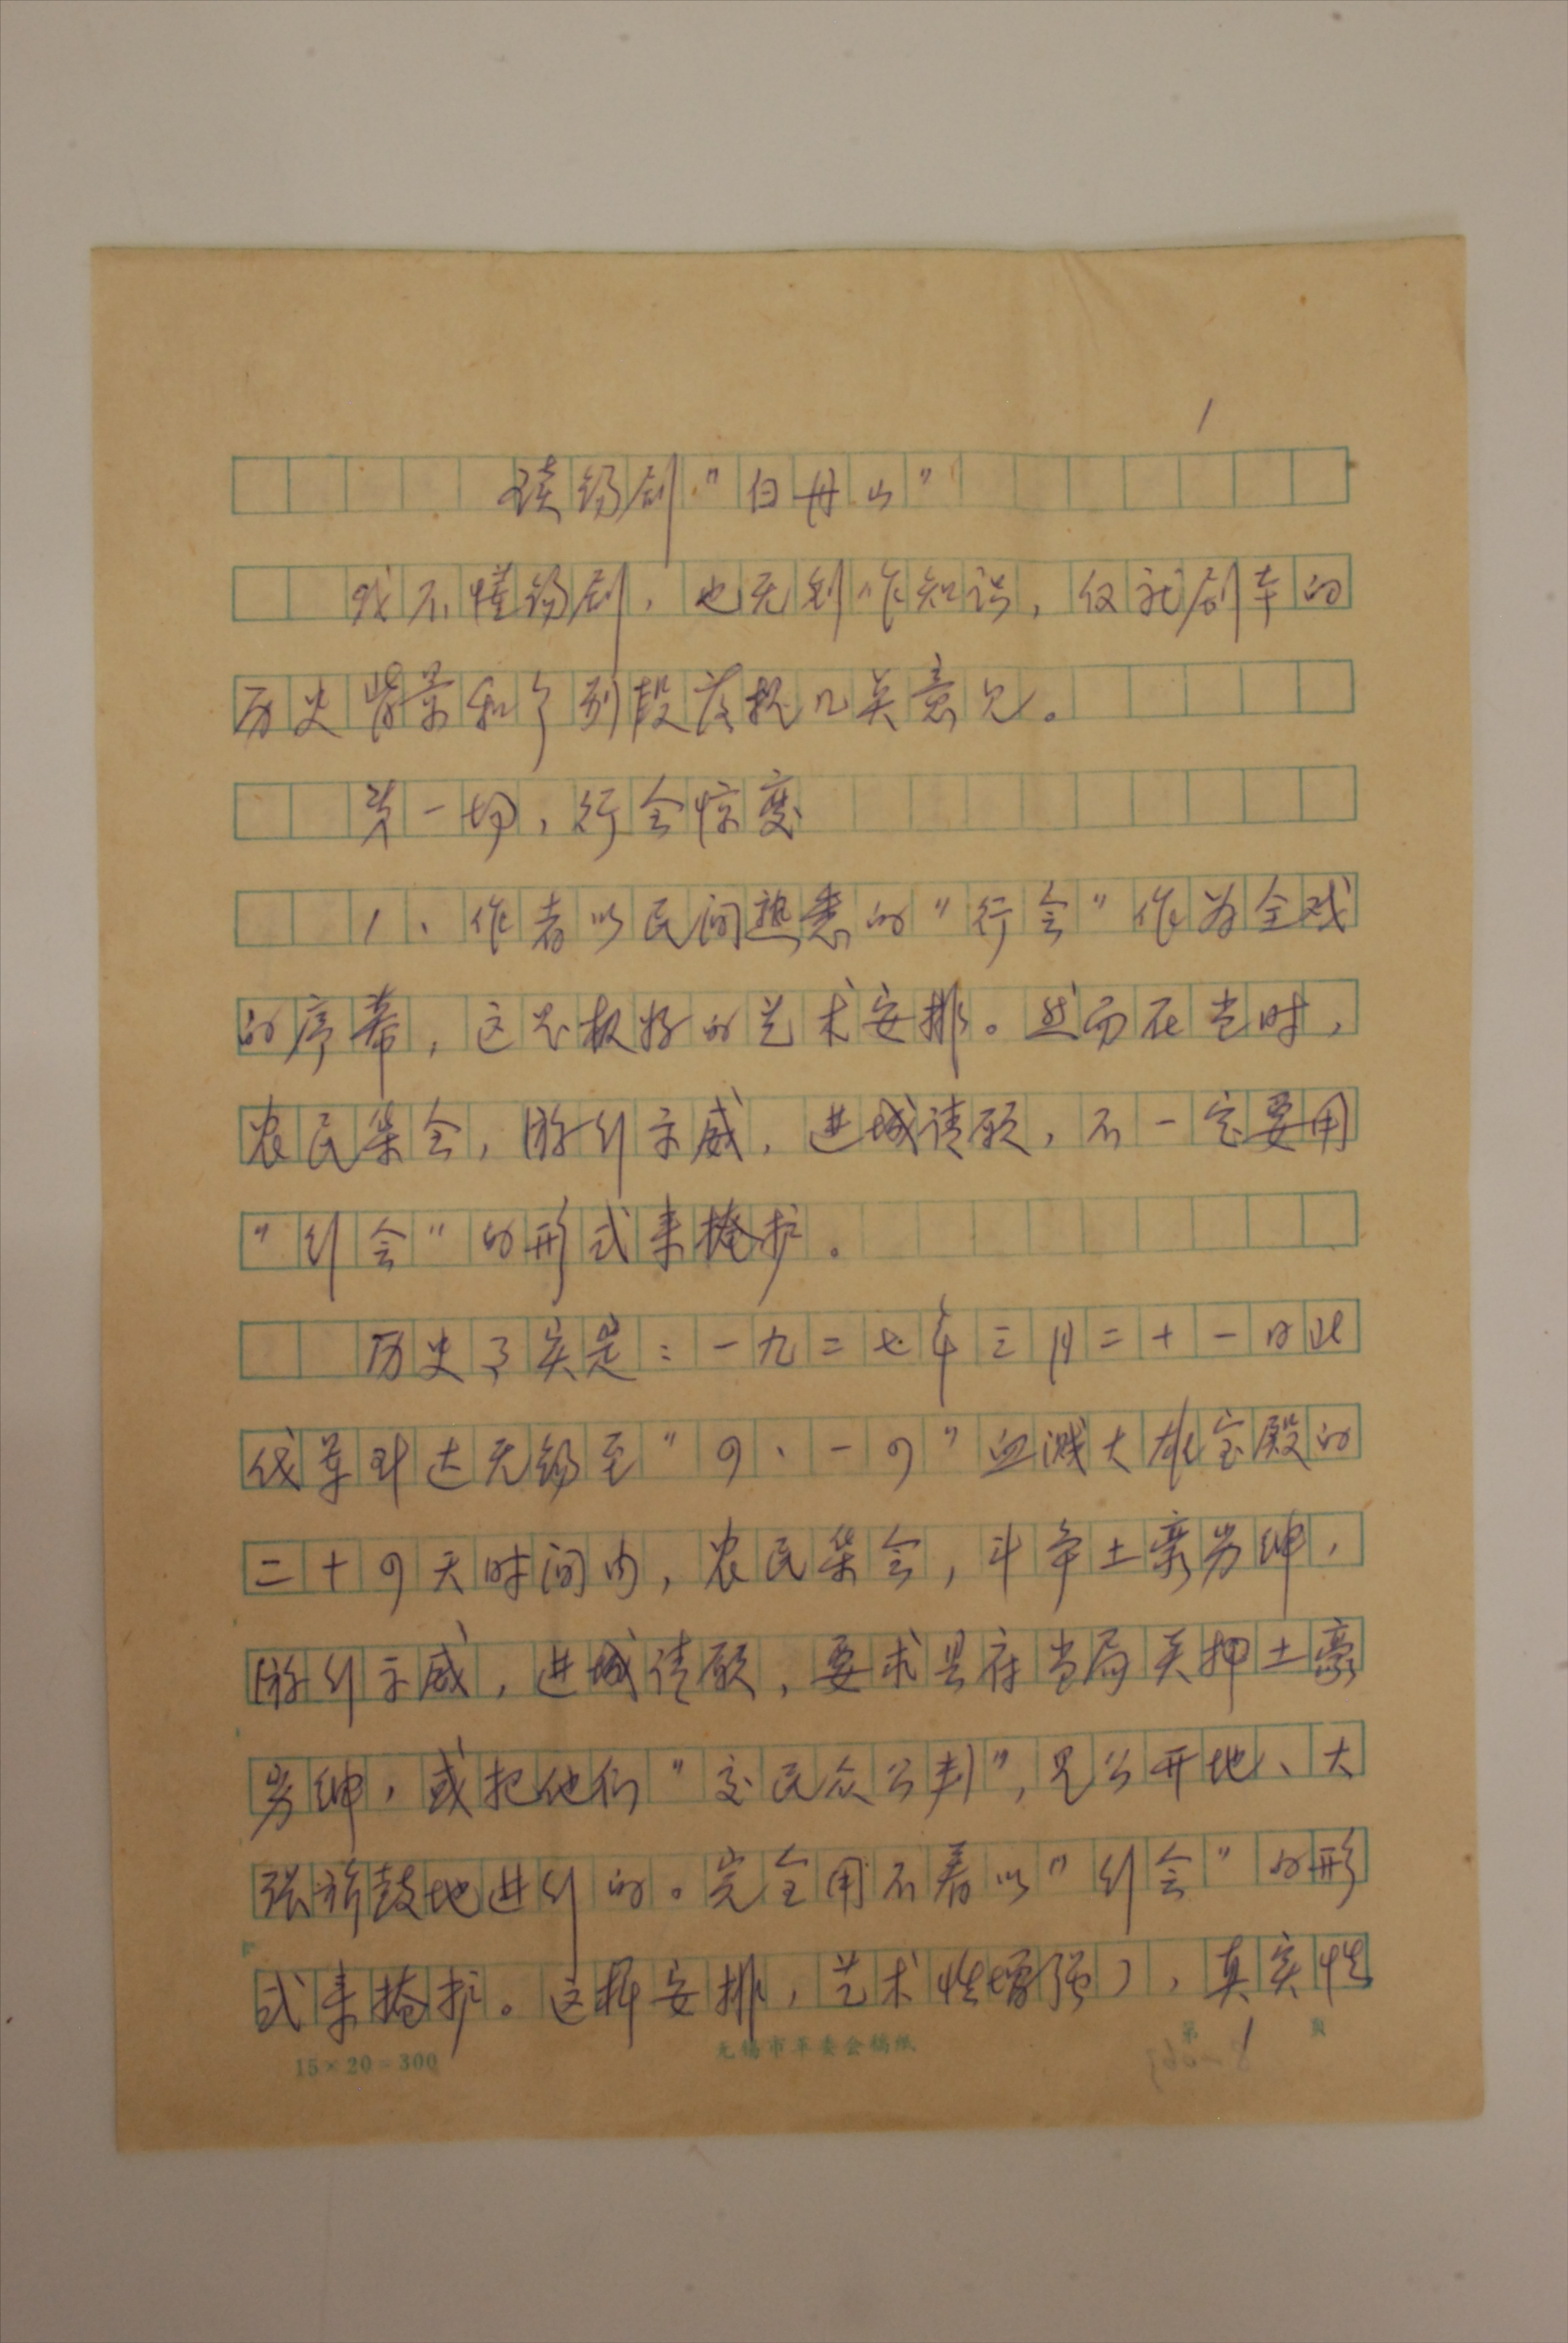 1
读锡剧"白丹山"
我不懂锡剧，也无创作知识，仅就剧本的
历史背景和个别段落提几点意见。
第一场，行会惊变
1、作者以民间熟悉的"行会"作为全戏
的序幕，这是极好的艺术安排。然而在当时，
农民集会，游行示威，进城请愿，不一定要用
"行会"的形式来掩护。
历史事实是：一九二七年三月二十一日北
伐军到达无锡至"四、一四"血溅大雄宝殿的
二十四天时间内，农民集会，斗争土豪劣绅，
游行示威，进城请愿，要求县府当局关押土豪
劣绅，或把他们"交民众公判"，是公开地、大
张旗鼓地进行的。完全用不着以"行会"的形
式来掩护。这样安排，艺术性增强了，真实性
15×20=300 无锡市革委会稿纸 第1頁